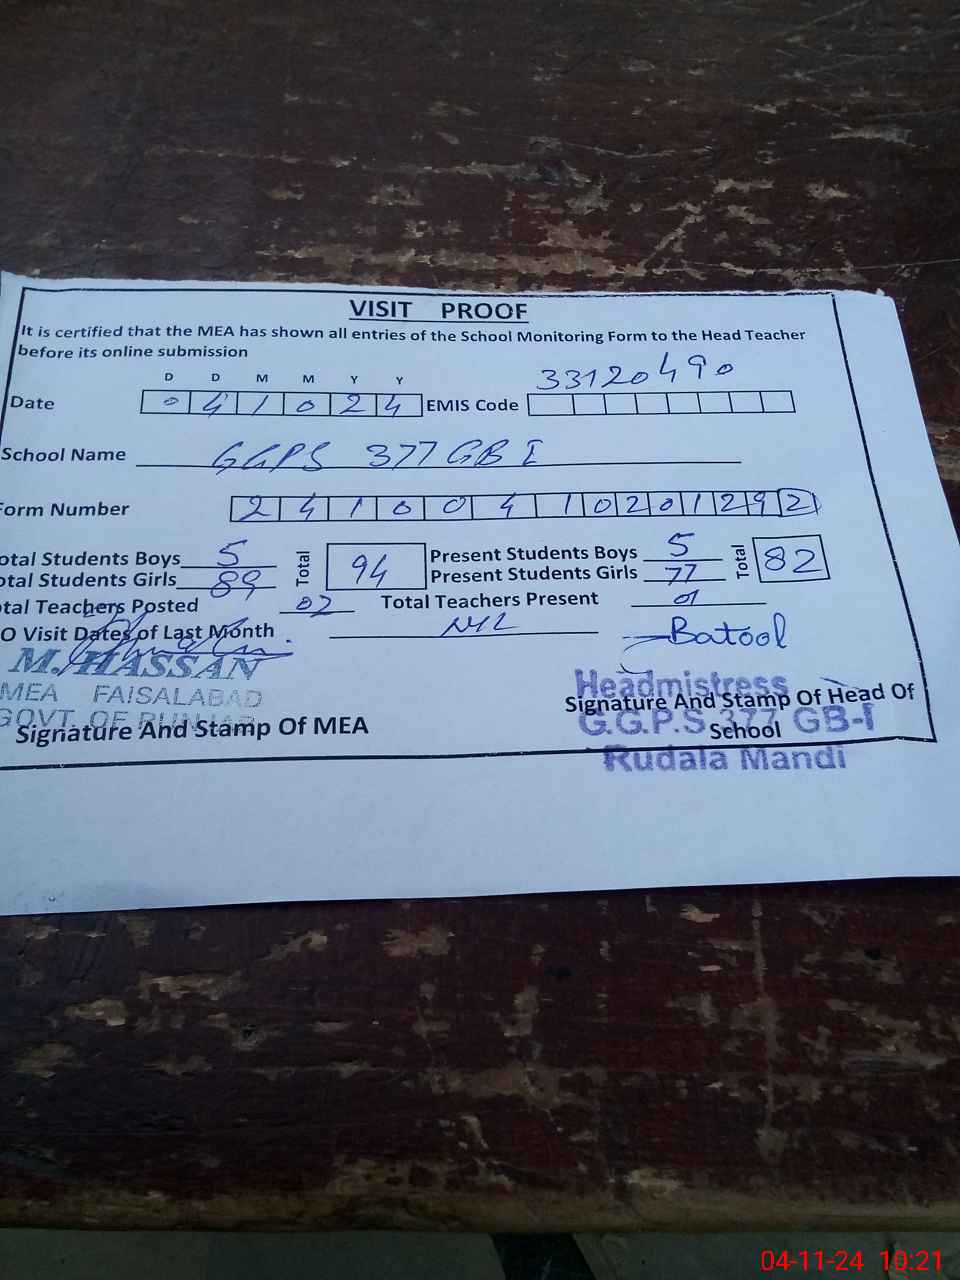 VISIT PROOF
It is certified that the MEA has shown all entries of the School Monitoring Form to the Head Teacher
before its online submission
D D M M Y Y
Date 0 4 1 0 2 4 EMIS Code 33120490
School Name GGPS 377 GB I
Form Number 2 4 1 0 0 4 1 0 2 0 1 2 9 2
otal Students Boys 5 Total 94 Present Students Boys 5 Total 82
otal Students Girls 89 Present Students Girls 77
tal Teachers Posted 02 Total Teachers Present 01
O Visit Dates of Last Month Nil
Batool
M. HASSAN
MEA FAISALABAD
GOVT. OF PUNJAB
Signature And Stamp Of MEA
Headmistress
Signature And Stamp Of Head Of
School
G.G.P.S 377 GB-I
Rudala Mandi
04-11-24 10:21